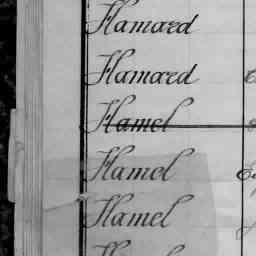 Hamard
Hamard
Hamel
Hamel
Hamel